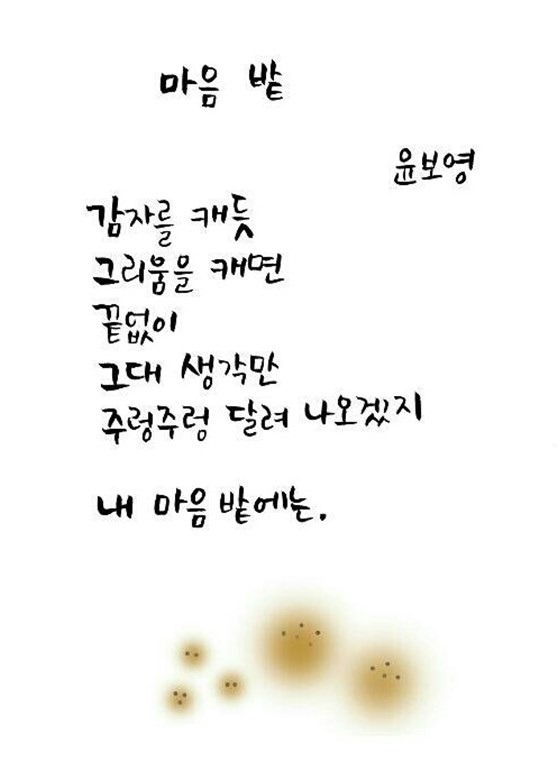 마음 밭
윤보영
감자를 캐듯
그리움을 캐면
끝없이
그대 생각만
주렁주렁 달려 나오겠지
내 마음 밭에는.